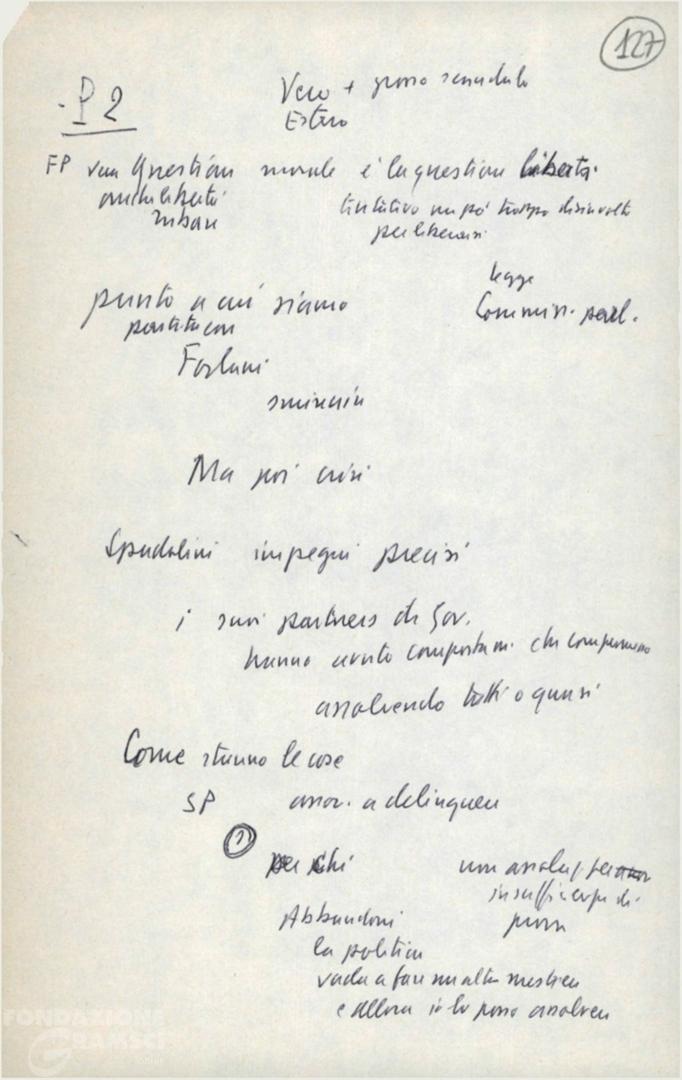 127
- P2
Vero + grosso scandalo
Estero
FP vera Questione morale è la questione libertà.
anche libertà
tentativo un po' troppo disinvolto
per liberarsi
legge
Commiss. parl.
punto a cui siamo
Forlani
Ma poi crisi
Spadolini impegni precisi
i suoi partners di Gov.
hanno avuto comportam. che
assolvendo tutti o quasi
Come stanno le cose
SP assoc. a delinquere
①
per chi
non assolv. per
insufficienza di
prove
Abbandoni
la politica
vada a fare un altro mestiere
e allora io lo posso assolvere
FONDAZIONE
GRAMSCI